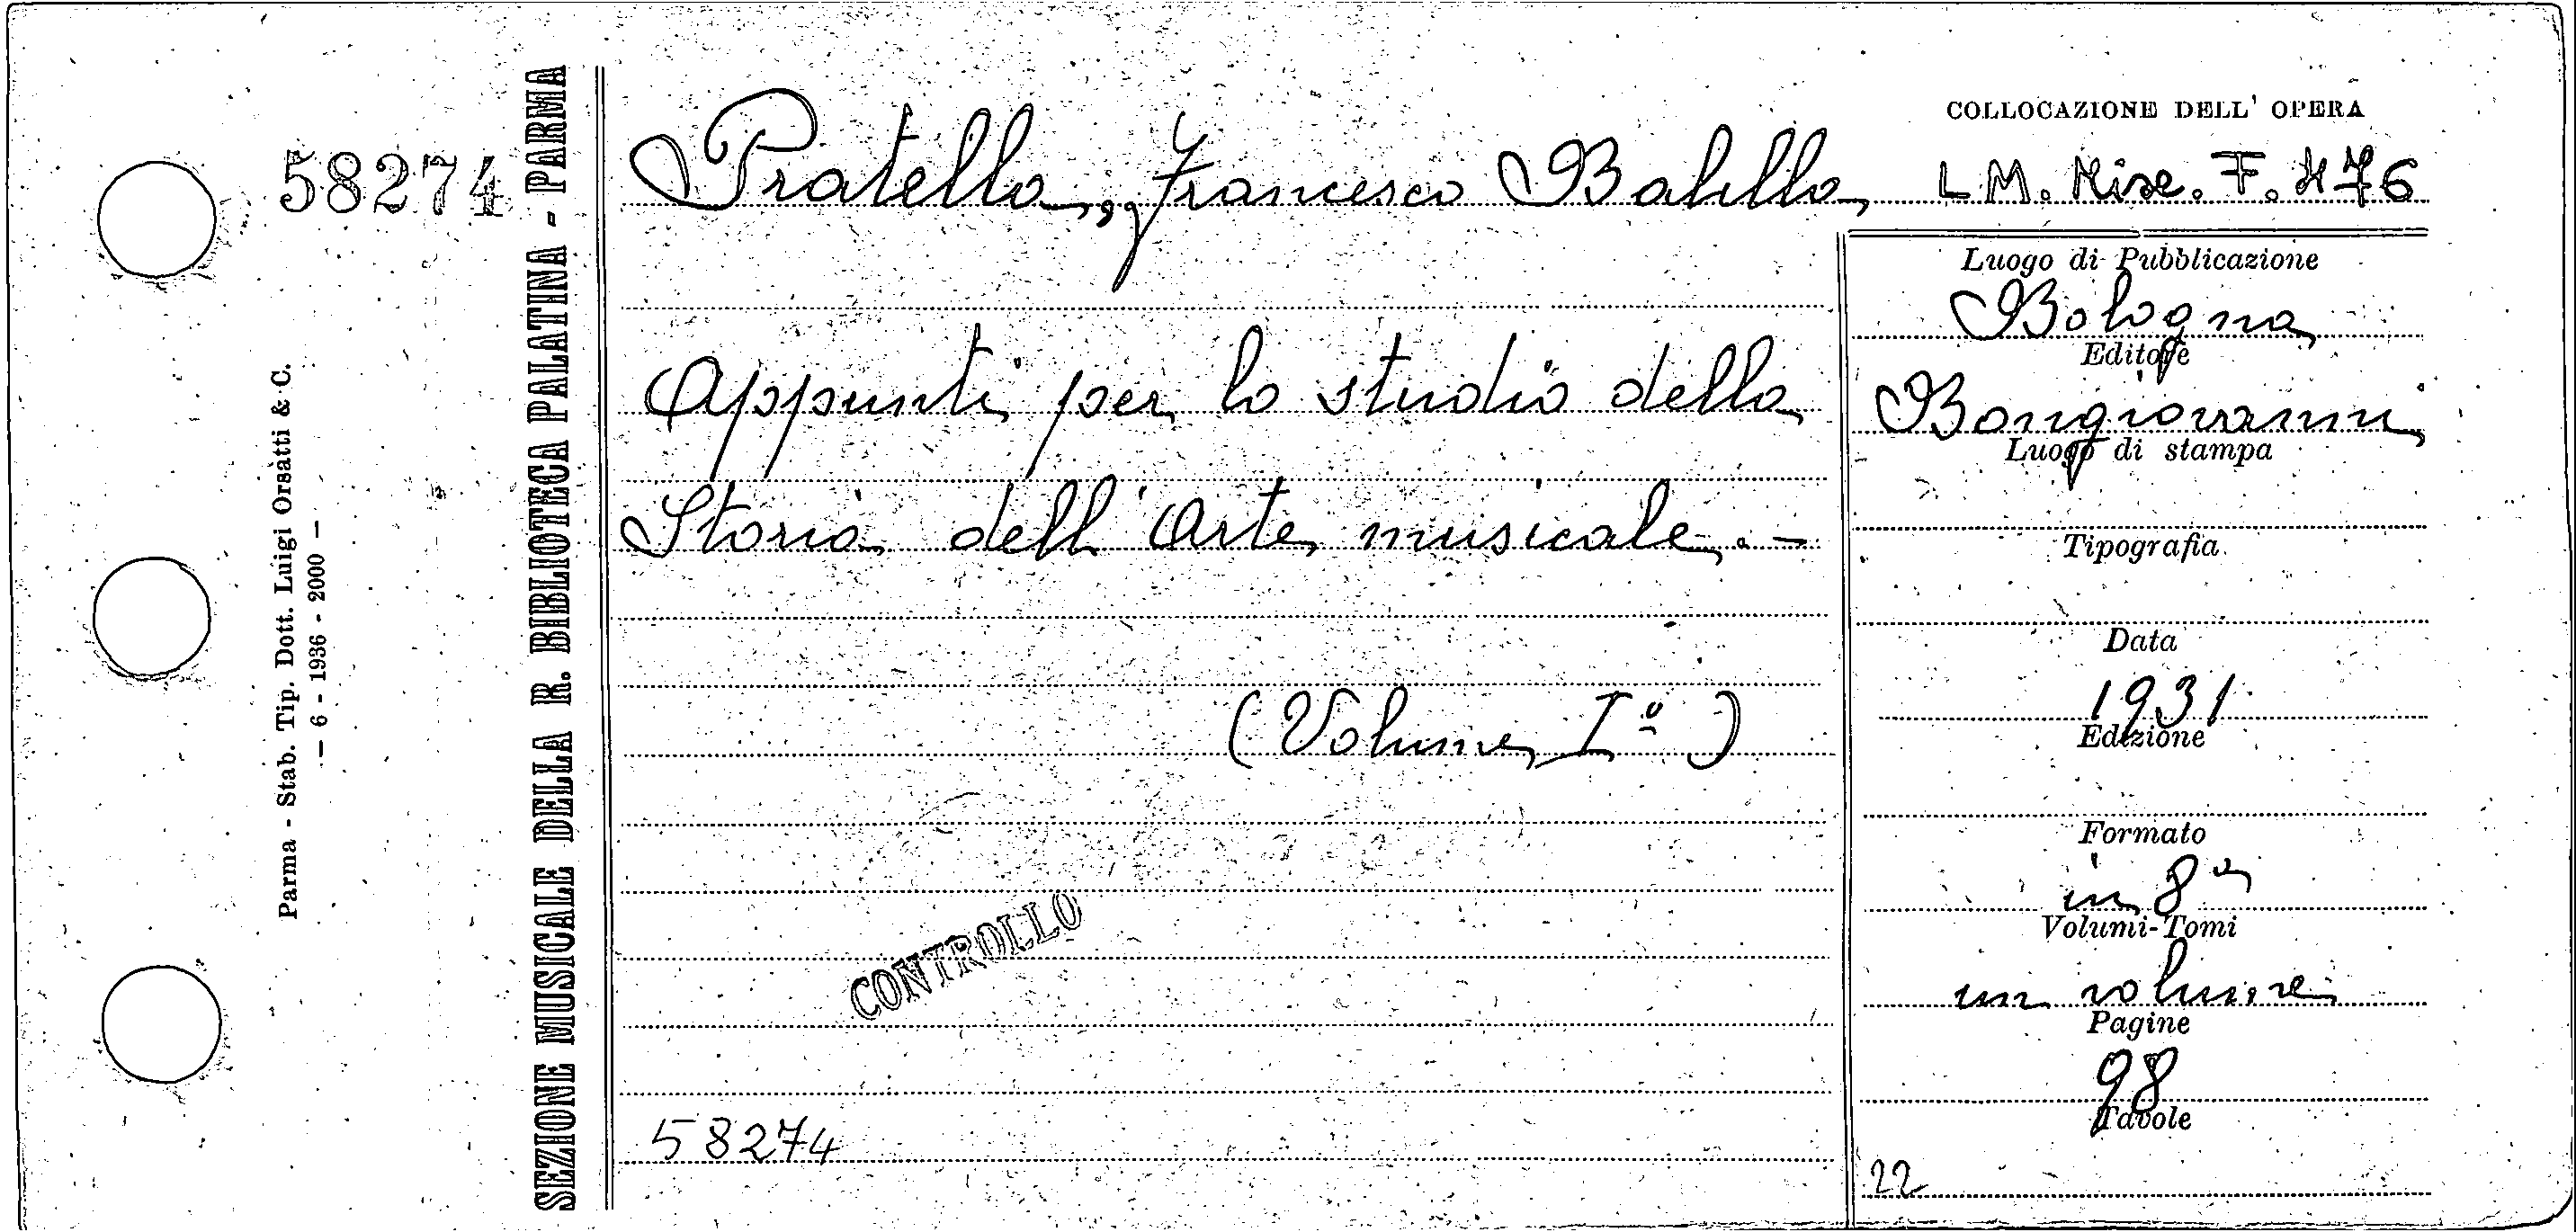 58274
Parma - Stab. Tip. Dott. Luigi Orsatti & C.
— 6 - 1936 - 2000 —
SEZIONE MUSICALE DELLA R. BIBLIOTECA PALATINA - PARMA
Pratella, Francesco Balilla
Appunti per lo studio della
Storia dell'Arte musicale. -
(Volume I°)
CONTROLLO
58274
COLLOCAZIONE DELL' OPERA
LM. Misc. F. 476
Luogo di Pubblicazione
Bologna
Editore
Bongiovanni
Luogo di stampa
Tipografia
Data
1931
Edizione
Formato
in 8°
Volumi-Tomi
un volume
Pagine
98
Tavole
22